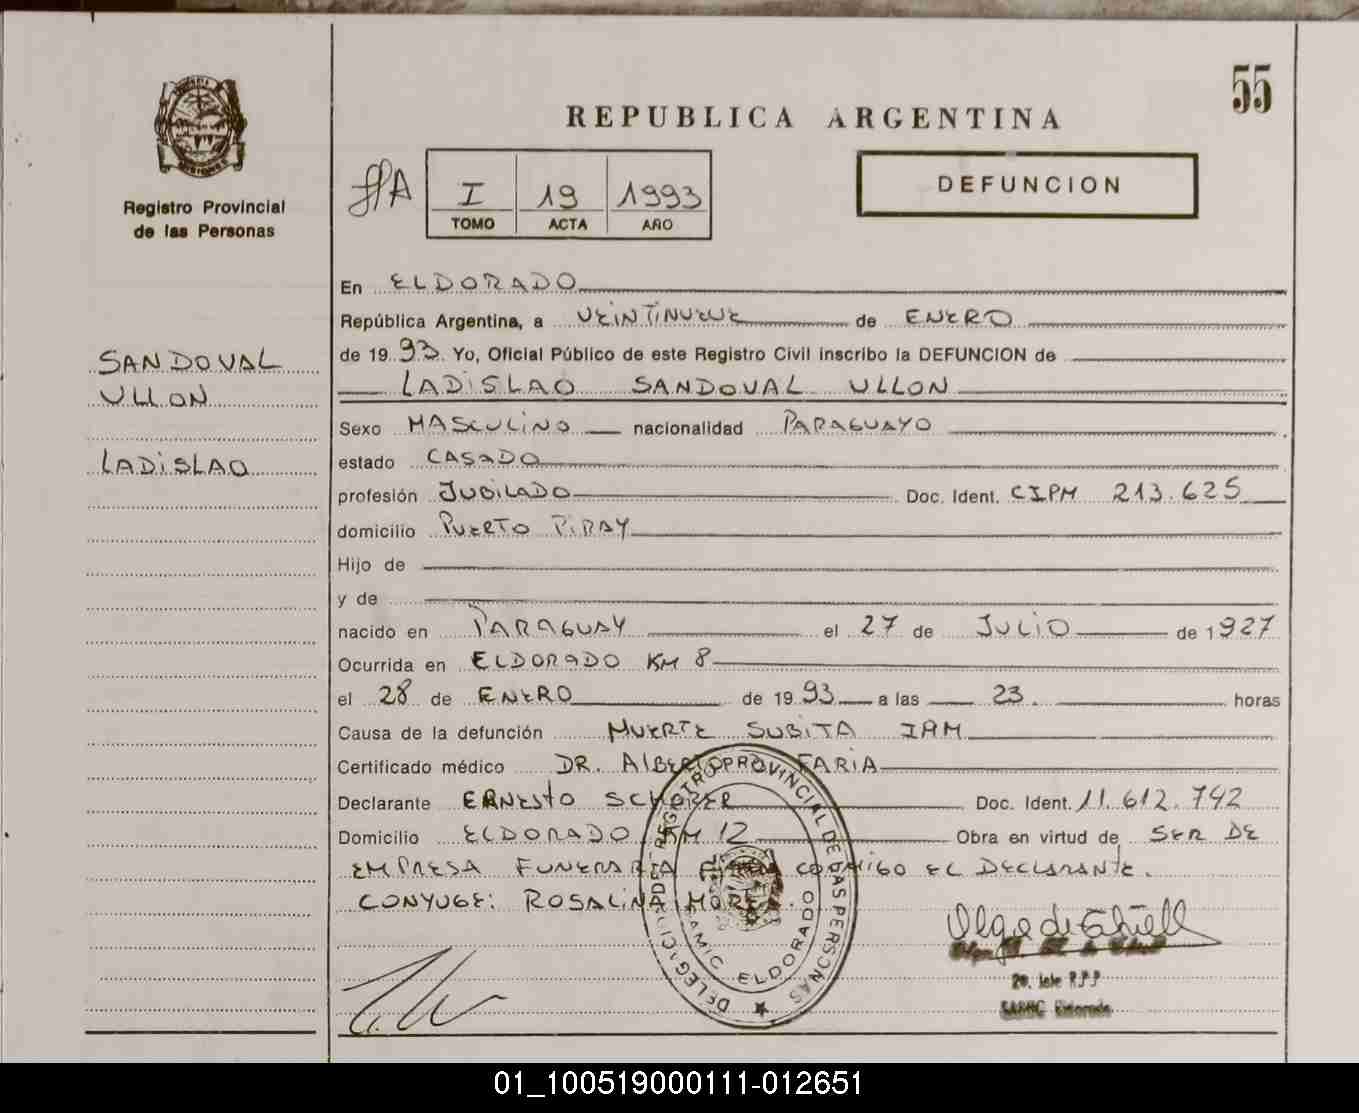 55
REPUBLICA ARGENTINA
MISIONES
Registro Provincial
de las Personas
I 19 1993
TOMO ACTA AÑO
DEFUNCION
SANDOVAL
ULLON
LADISLAO
En ELDORADO
República Argentina, a VEINTINUEVE de ENERO
de 1993. Yo, Oficial Público de este Registro Civil inscribo la DEFUNCION de
LADISLAO SANDOVAL ULLON
Sexo MASCULINO nacionalidad PARAGUAYO
estado CASADO
profesión JUBILADO Doc. Ident. CIPM 213.625
domicilio PUERTO PIRAY
Hijo de
y de
nacido en PARAGUAY el 27 de JULIO de 1927
Ocurrida en ELDORADO KM 8
el 28 de ENERO de 1993 a las 23. horas
Causa de la defunción MUERTE SUBITA IAM
Certificado médico DR. ALBERTO FARIA
Declarante ERNESTO SCHORER Doc. Ident. 11.612.742
Domicilio ELDORADO KM 12 Obra en virtud de SER DE
EMPRESA FUNERARIA CONMIGO EL DECLARANTE.
CONYUGE: ROSALINA
REGISTRO PROVINCIAL DE LAS PERSONAS
DELEGACION
SAMIC ELDORADO
SAMIC Eldorado
01_100519000111-012651